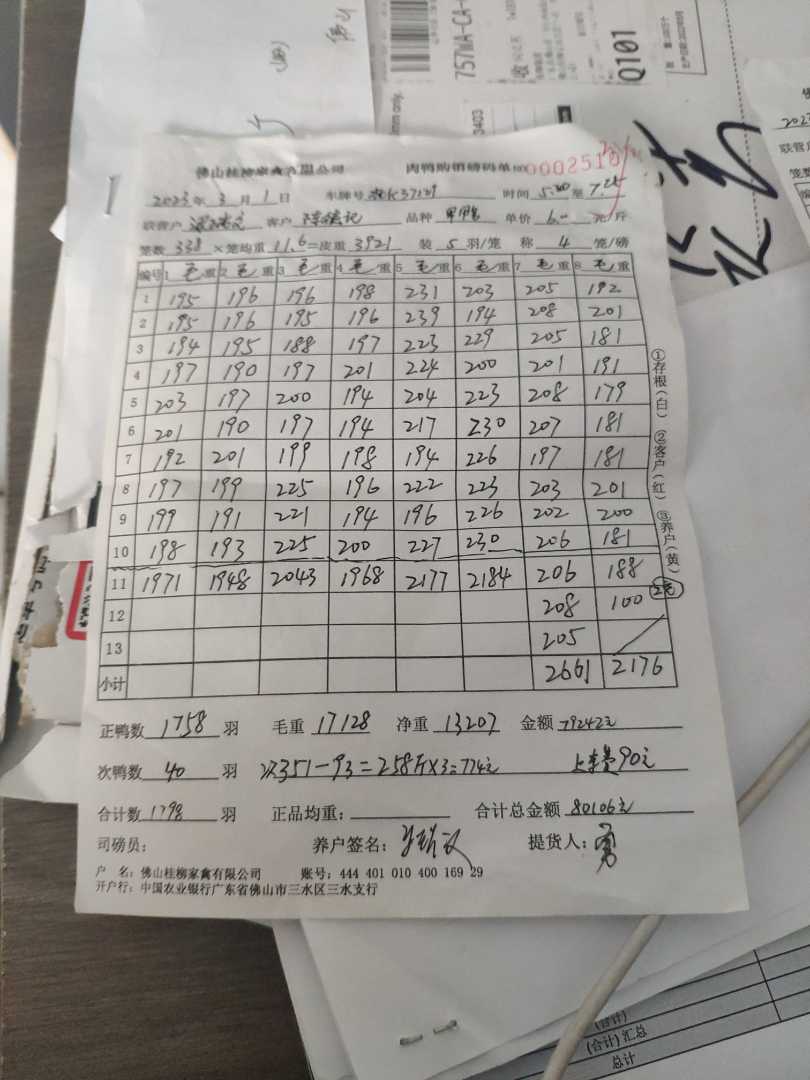 佛山
757WA-CA-
收
Q101
mm only.
3403
佛山桂柳家禽有限公司 肉鸭购销磅码单 No 0002510
2023年 3月 1日 车牌号 37121 时间 5:20 至 7:25
联营户 客户 陈镜记 品种 甲鸭 单价 6.0 元/斤
笼数 338 ×笼均重 11.6 =皮重 3921 装 5 羽/笼 称 4 笼/磅
编号 1 毛/重 2 毛/重 3 毛/重 4 毛/重 5 毛/重 6 毛/重 7 毛/重 8 毛/重
1 195 196 196 198 231 203 205 192
2 195 196 195 196 239 194 208 201
3 194 195 188 197 223 229 205 181
4 197 190 197 201 224 200 201 191
5 203 197 200 194 204 223 208 179
6 201 190 197 194 217 230 207 181
7 192 201 199 198 194 226 197 181
8 197 199 225 196 222 223 203 201
9 199 191 221 194 196 226 202 200
10 198 193 225 200 227 230 206 181
11 1971 1948 2043 1968 2177 2184 206 188
12 208 100 2笼
13 205
小计 2661 2176
①存根(白) ②客户(红) ③养户(黄)
正鸭数 1758 羽 毛重 17128 净重 13207 金额 79242元
次鸭数 40 羽 次351-93=258斤×3=774元 上车费90元
合计数 1798 羽 正品均重: 合计总金额 80106元
司磅员: 养户签名: 提货人:
户 名: 佛山桂柳家禽有限公司 账号: 444 401 010 400 169 29
开户行: 中国农业银行广东省佛山市三水区三水支行
(合计)
(合计) 汇总
总计